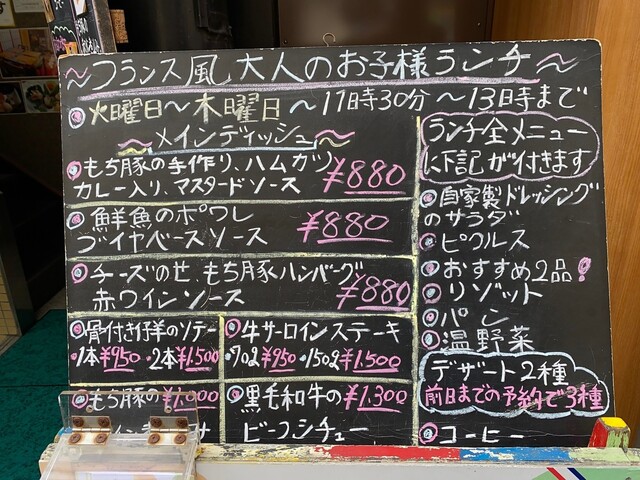 ～フランス風大人のお子様ランチ～
火曜日～木曜日～11時30分～13時まで
～メインディッシュ～
もち豚の手作り、ハムカツ
カレー入り、マスタードソース ¥880
鮮魚のポワレ
ブイヤベースソース ¥880
チーズのせ、もち豚ハンバーグ
赤ワインソース ¥880
骨付き仔羊のソテー
1本¥950・2本¥1,500
牛サーロインステーキ
・90g¥950・150g¥1,500
もち豚の ¥1,000
黒毛和牛の ¥1,300
ビーフシチュー
ランチ全メニュー
に下記が付きます
自家製ドレッシング
のサラダ
ピクルス
おすすめ2品!
リゾット
パン
温野菜
デザート2種
前日までの予約で3種
コーヒー